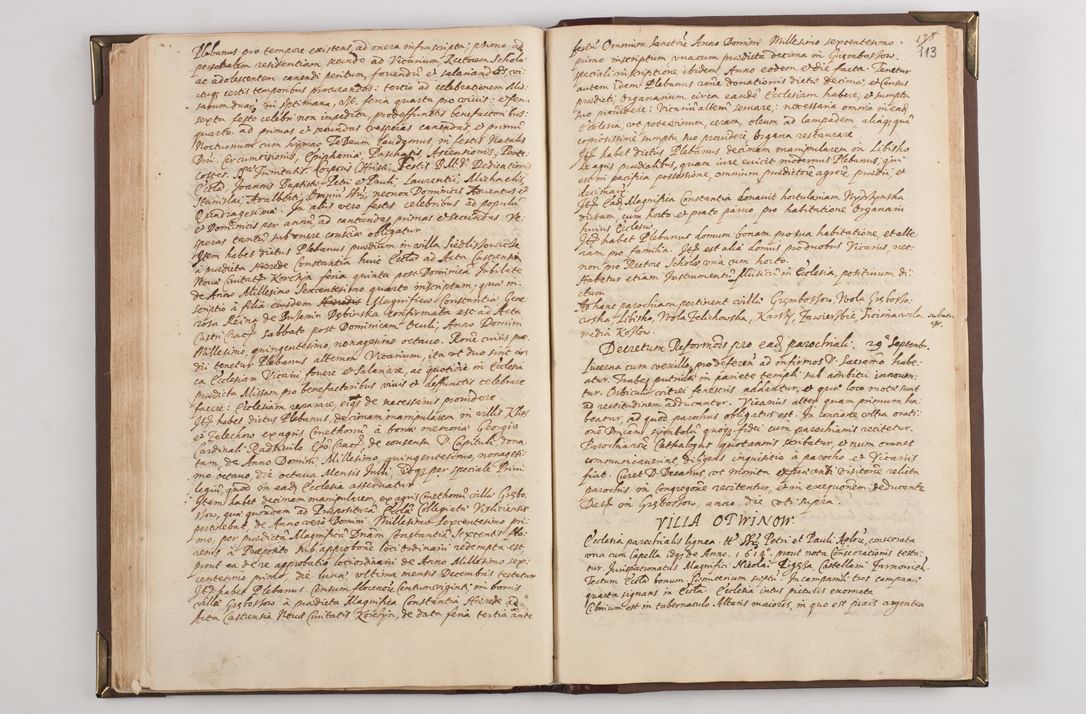 Plebanus pro tempore existens, ad onera infrascripta; primo ad
personalem residentiam secundo ad Vicarium Rectorem Scholæ
ac adolescentem canendi peritum, fovendum et salariand et vi-
certis temporibus procurandos: tertio ad celebrationem Mis-
sarum duarum in septimana, feria quarta pro vivis: et feria
sexta festo celebri non impedita, pro defunctis benefactoribus:
quarto ad primas et secundas vesperas cantandas, et primum
Nocturnum cum hymno Te Deum laudamus in festis Natalis
Dni Circumcisionis, Epiphaniæ Paschatis Ascensionis, Pente-
costes, Trinitatis, Corporis Christi, Festis B.M.V. Dedicationis
Ecclæ, Joannis Baptistæ Petri et Pauli, Laurentii, Michaelis,
Stanislai, Adalberti, Omnium necnon Dominicis Adventus et
Quadragesimæ. In aliis vero festis celebribus ad populum
et Dominicis per annum ad cantandas primas et secundas Ve-
speras tantum sub onere conscientiæ obligatur
Item habet dictus Plebanus prædium in villa Siedliszowice
a prædicta Herede Constantia huic Ecclæ ad Acta Castrensia
Novæ Civitatis Korczyn feria quinta post Dominicam Jubilate
de Anno Millesimo Sexcentesimo quarto inscriptum, quæ in-
scriptio a filia eiusdem Magnificæ Constantiæ Gene-
rosa Regina de Busenin Dębinska confirmata est ad Acta
Castri Cracoviæ Sabbato post Dominicam Oculi, Anno Domini
Millesimo, quingentesimo, nonagesimo octavo. Rone cuius præ-
dii tenetur Plebanus alterum Vicarium, ita ut duo sint cir-
ca Ecclesiam Vicarii fovere et salariare, ac quotidie in Ecclesia
prædicta Missam pro benefactoribus vivis et defunctis celebrare
facere: Ecclesiam reparare, eique de necessariis providere
Itē habet dictus Plebanus, decimam manipularem in villis Kłos
et Zelechow ex agris Cmethonum a bonæ memoriæ Georgio
Cardinali Radziwilo Epo Cracov de consensu V. Capituli dona-
tam, de Anno Domini Millesimo, quingentesimo, nonagesi-
mo octavo, die octava Mensis Julii, per speciale Privi-
legium quod in eadē Ecclesia asservatur
Item habet decimam manipularem, ex agris Cmethonum villæ Grębo-
szow, quæ quondam ad Præposituram Ecclæ Collegiatæ Visliciensis
pertinebat, de Anno vero Domini Millesimo sexcentesimo pri-
mo, per prædictam Magnificam Dnam Constantiam Sexcentis Flo-
renis a Præposito sub approbone loci Ordinarii redempta est
prout ea de re approbatio loci ordinarii de Anno Millesimo sex-
centesimo primo, die lunæ ultima mensis Decembris testatur
Itē habet Plebanus Censum florenos Centum viginti in bonis
villæ Gręboszow a prædicta Magnifica Constantia Herede ad
Acta Castrensia Novæ Civitatis Korczyn, de data feria tertia ante
113
festum Omnium Sanctorum Anno Domini Millesimo sexcentesimo
primo inscriptum, una cum prædicta decima in Gręmboszow,
speciali inscriptione ibidem Anno eodem et die facta. Tenetur
autem idem Plebanus rone donationis dictæ decimæ, et Census
prædicti Organarium circa eandē Ecclesiam habere, et sumptu
suo providere: Vicarium alterum servare: necessaria omnia in eadē
Ecclesia, ut puta vinum, ceram, oleum ad lampadem aliaque quæ
copiosissime sumptu suo providere, Organa restaurare
Itē habet dictus Plebanus decimam manipularem in Libisko
ex agris prædialibus, quam iure evicit modernus Plebanus, qui
est in pacifica possessione, omnium prædictorum agrorum prædii, et
decimarum
Itē eadē Magnifica Constantia donavit hortulaniam Nydzynska
dictam, cum horto et prato parvo pro habitatione Organarii
huius Ecclesiæ
Itē habet Plebanus domum bonam pro sua habitatione, et alte-
ram pro familia. Itē est alia domus pro duobus Vicariis nec-
non pro Rectore Scholæ una cum horto.
Habetur etiam Instrumentum Musicum in Ecclesia, positivum di-
ctum
Ad hanc parochiam pertinent villæ Gręmboszow Wola Gręboszo-
wska Libisko, Wola Zelichowska, Karsy, Zawierzbie
media Kozłow.
Decretum Reformonis pro eadē parochiali. 29 Septemb.
Lucerna cum vexillo, pro deferend ad infirmos V. Sacramento habe-
atur. Trabes putridæ in pariete templi sub ambitu innoven-
tur. Orbiculi vitrei fenestris addantur, et quæ loco motæ sunt
ad rectitudinem adducantur. Vicarius alter quam primum ha-
beatur, ad quod parochus obligatus est. In concione ultra orati-
onē Dnicam symbolum quoque fidei cum parochianis recitetur.
Parochianorum Cathalogus quotannis scribatur, et num omnes
communicaverint diligens inquisitio a parocho et Vicariis
fiat. Curet D. Decanus, ut monita Visitone relicta
parochis in Congregone recitentur, et in exequonem deducantur
Dat in Gręboszow, anno, die uti supra.
VILLA OTWINOW.
Ecclesia parochialis lignea ttᵒ Petri et Pauli Aplorū, consecrata
una cum Capella de Anno 1618. prout nota Consecrationis testa-
tur Jurispatronatus Magnifici Nicolai Ligęza Castellani
Tectum Ecclæ bonum, Cæmeterium septum. In campanili tres campanæ
quarta signans in Ecclæ. Ecclesia intus picturis exornata
Ciborium est in tabernaculo Altaris maioris, in quo est pixis argentea